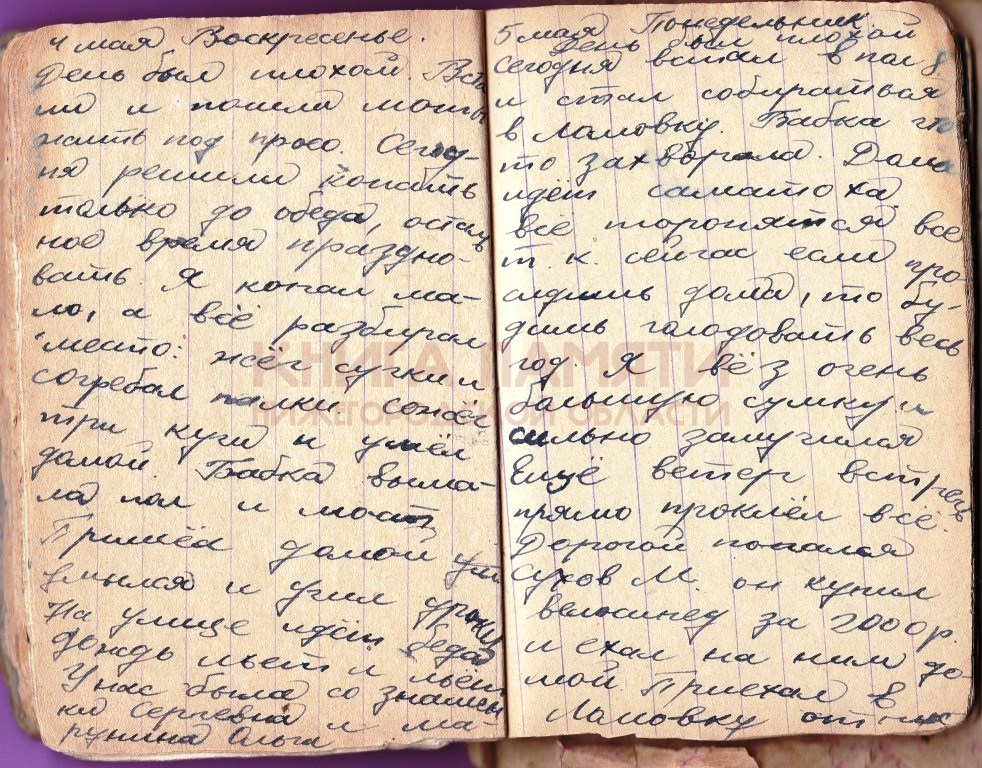 4 мая Воскресенье.
День был плохой. Вста
ли и пошли моты
жить под просо. Сего-
ня решили копать
только до обеда, осталь
ное время праздно-
вать. Я копал ма-
ло, а всё разбирал
место: жёг сучки и
сгребал палки. Сожёг
три кучи и ушёл
домой. Бабка вымы-
ла пол и мост
Пришёл домой
умылся и учил уроки
На улице идёт беда
дождь льёт и льёт
У нас была со
ки Сергеевна и ма-
Ольга
5 мая Понедельник.
День был плохой
Сегодня встал в пол 8
и стал собираться
в Ломовку. Бабка что
то захворала. Дома
идёт саматоха
все торопятся все
т. к. сейчас если про
слдишь дома, то бу-
дишь голодовать весь
год. Я вёз очень
большую сумку и
сильно замучился
Ещё ветер встречь
прямо проклял всё.
Дорогой попался
Сухов М. он купил
велосипед за 2000 р.
и ехал на ним до-
мой. Приехал в
Ломовку
КНИГА ПАМЯТИ
НИЖЕГОРОДСКОЙ ОБЛАСТИ